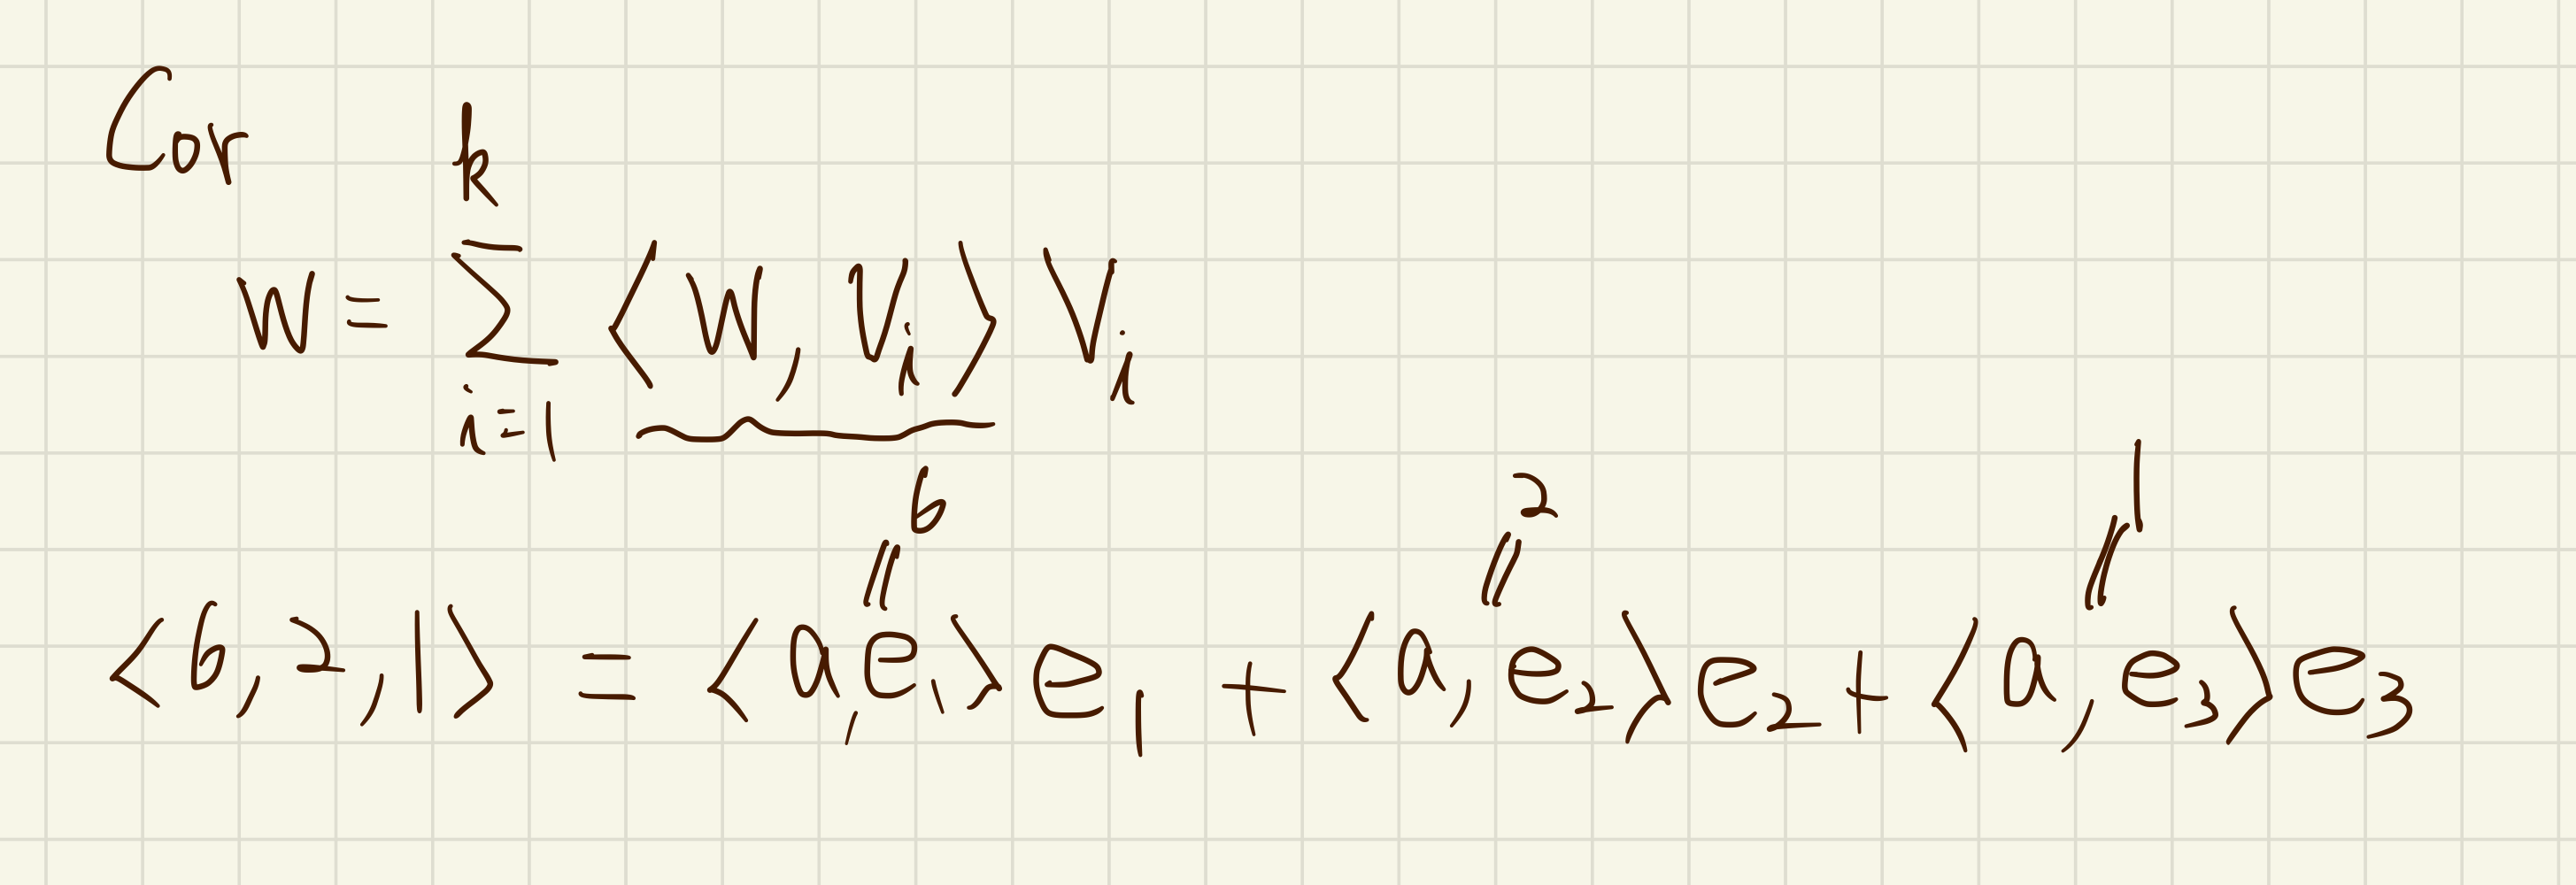 Cor
w = \sum_{i=1}^{k} ⟨w, v_i⟩ v_i
6 2 1
⟨6, 2, 1⟩ = ⟨a, e_1⟩e_1 + ⟨a, e_2⟩e_2 + ⟨a, e_3⟩e_3